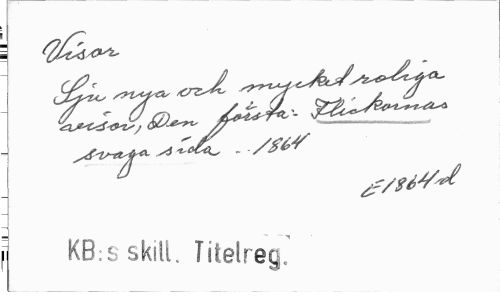 Visor
Sju nya och mycket roliga
visor, Den första: Flickornas
svaga sida .. 1864
E1864d
KB:s skill. Titelreg.